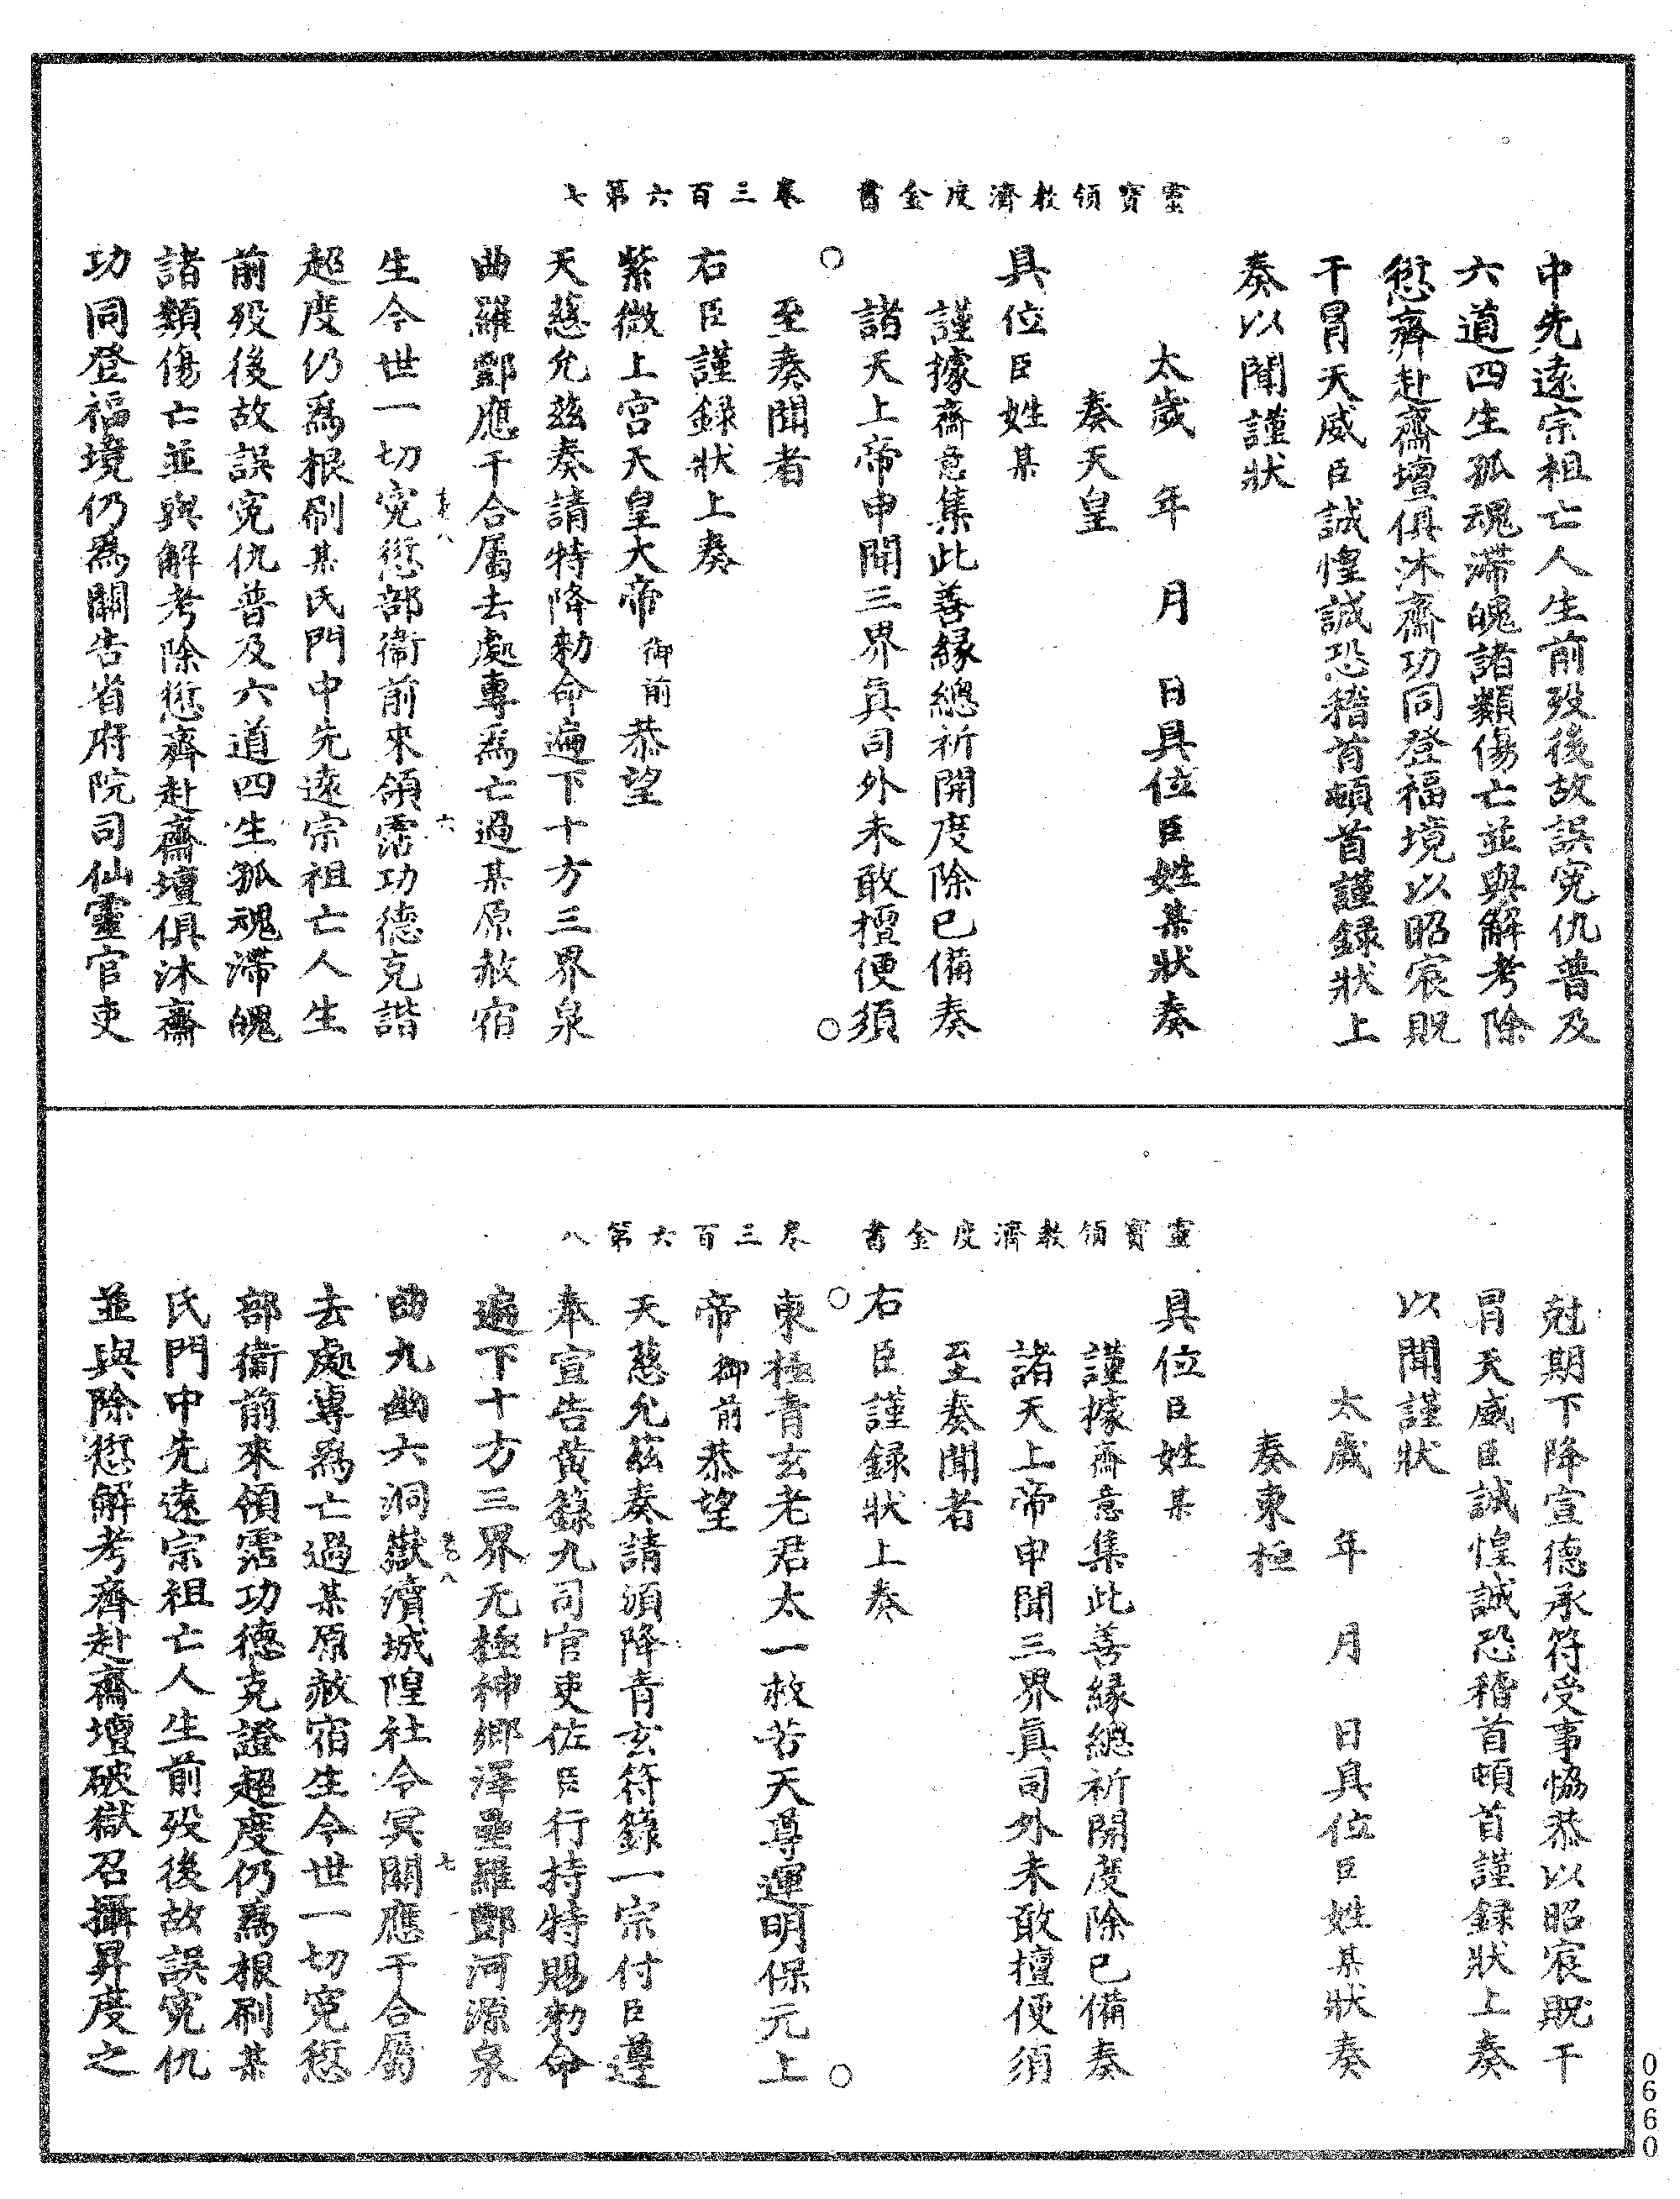 靈寶領教濟度金書　卷三百六　第七
中先遠宗祖亡人生前歿後故誤寃仇普及
六道四生孤魂滯魄諸類傷亡並與解考除
愆齊赴齋壇俱沐齋功同登福境以昭宸貺
干冒天威臣誠惶誠恐稽首頓首謹録狀上
奏以聞謹狀
太歲　年　月　日具位臣姓某狀奏
奏天皇
具位臣姓某
謹據齋意集此善緣總祈開度除已備奏
諸天上帝申聞三界眞司外未敢擅便須
至奏聞者
右臣謹録狀上奏
紫微上宫天皇大帝御前恭望
天慈允兹奏請特降勑命遍下十方三界泉
曲羅酆應干合屬去處專爲亡過某原赦宿
生今世一切寃愆部衞前來領霑功德克諧
超度仍爲根刷某氏門中先遠宗祖亡人生
前歿後故誤寃仇普及六道四生孤魂滯魄
諸類傷亡並與解考除愆齊赴齋壇俱沐齋
功同登福境仍爲關告省府院司仙靈官吏
靈寶領教濟度金書　卷三百六　第八
尅期下降宣德承符受事恊恭以昭宸貺干
冒天威臣誠惶誠恐稽首頓首謹録狀上奏
以聞謹狀
太歲　年　月　日具位臣姓某狀奏
奏東極
具位臣姓某
謹據齋意集此善緣總祈開度除已備奏
諸天上帝申聞三界眞司外未敢擅便須
至奏聞者
右臣謹録狀上奏
東極青玄老君太一救苦天尊運明保元上
帝御前恭望
天慈允兹奏請頒降青玄符籙一宗付臣遵
奉宣告黄籙九司官吏佐臣行持特賜勑命
遍下十方三界无極神鄉澤壘羅酆河源泉
曲九幽六洞嶽瀆城隍社令冥關應干合屬
去處專爲亡過某原赦宿生今世一切寃愆
部衞前來領霑功德克證超度仍爲根刷某
氏門中先遠宗祖亡人生前歿後故誤寃仇
並與除愆解考齊赴齋壇破獄召攝昇度之
0660